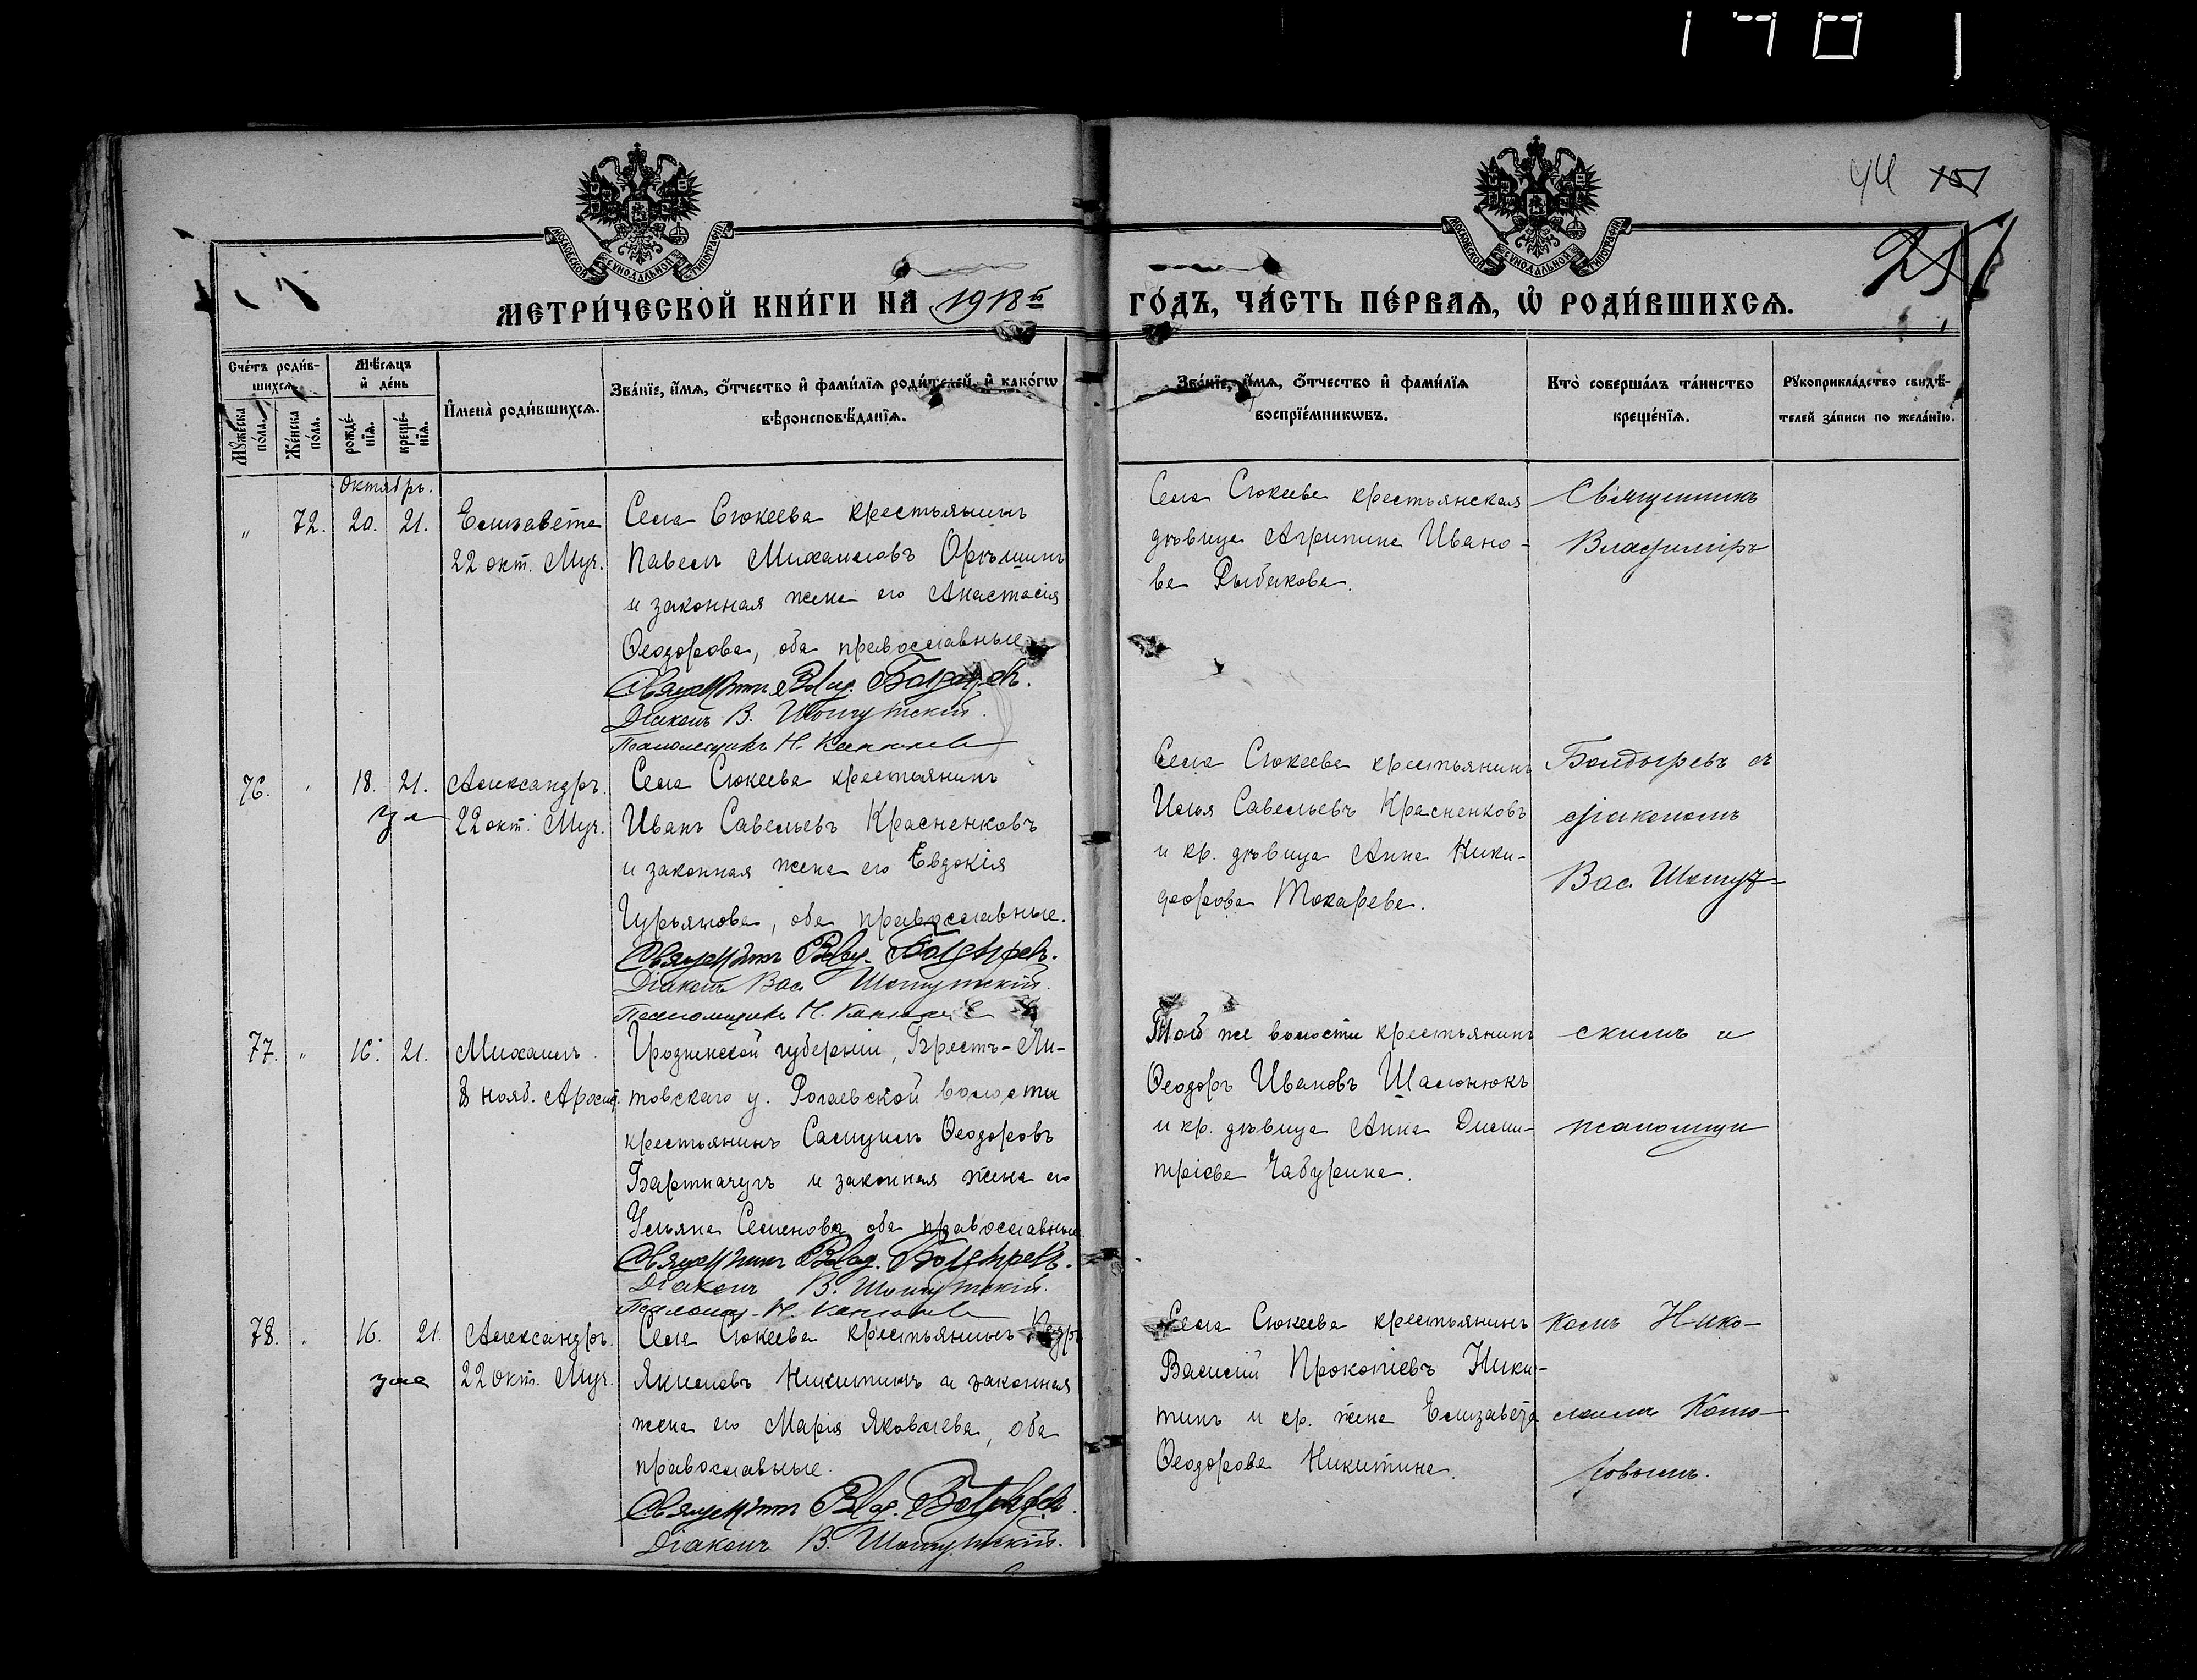 44 151
25
МОСКОВСКОЙ СУНОДАЛЬНОЙ ТИПОГРАФІИ
МОСКОВСКОЙ СУНОДАЛЬНОЙ ТИПОГРАФІИ
МЕТРИ́ЧЕСКОЙ КНИ́ГИ НА 1918й ГО́ДЪ, ЧА́СТЬ ПЕ́РВАЯ, Ѡ РОДИ́ВШИХСЯ.
Сче́тъ роди́в-
шихся.
Мѣ́сяцъ
и де́нь
Му́жеска по́ла.
Же́нска по́ла.
рожде́-
нїя.
креще́-
нїя.
Имена̀ роди́вшихся.
Зва́нїе, и́мя, о́тчество и фами́лїя роди́телей, и како́гѡ
вѣроисповѣ́данїя.
Зва́нїе, и́мя, о́тчество и фами́лїя
воспрїе́мникѡвъ.
Кто̀ соверша́лъ та́инство
креще́нїя.
Рꙋкоприкла́дство свидѣ́-
телей за́писи по жела́нїю.
Октябрь.
„ 72. 20. 21. Елизавета
22 окт. Муч.
Села Сюкеева крестьянинъ
Павелъ Михаиловъ Орѣшинъ
и законная жена его Анастасія
Ѳеодорова, оба православные
Священникъ Влад. Болдырев.
Діаконъ В. Шошутскій.
Псаломщикъ Н.
Села Сюкеева крестьянская
дѣвица Агрипина Ивано-
ва Рыбакова.
Священникъ
Владиміръ
76. „ 18. 21. Александръ.
22 окт. Муч.
Села Сюкеева крестьянинъ
Иванъ Савельевъ Красненковъ
и законная жена его Евдокія
Гурьянова, оба православные.
Священникъ Влад. Болдырев.
Діаконъ Вас. Шошутскій.
Псаломщикъ Н.
Села Сюкеева крестьянинъ
Илья Савельевъ Красненковъ
и кр. дѣвица Анна Ники-
форова Токарева.
Болдыревъ съ
діакономъ
Вас. Шошут-
77. „ 16. 21. Михаилъ.
8 нояб.
Гродненской губерніи, Брестъ-Ли-
товскаго у. Рогаевской волости
крестьянинъ Самуилъ Ѳеодоровъ
и законная жена его
Ульяна Семенова, оба православные
Священникъ Влад. Болдырев.
Діаконъ В. Шошутскій.
Псаломщ. Н.
Той же волости крестьянинъ
Ѳеодоръ Ивановъ Шалонюкъ
и кр. дѣвица Анна Дими-
тріева Чабурина.
скимъ и
псаломщи
78. „ 16. 21. Александръ.
22 окт. Муч.
Села Сюкеева крестьянинъ
Якимовъ Никитинъ и законная
жена его Марія Яковлева, оба
православные.
Священникъ Влад. Болдырев.
Діаконъ В. Шошутскій.
Села Сюкеева крестьянинъ
Василій Прокопіевъ Ники-
тинъ и кр. жена Елизавета
Ѳеодорова Никитина.
комъ Нико-
лаемъ